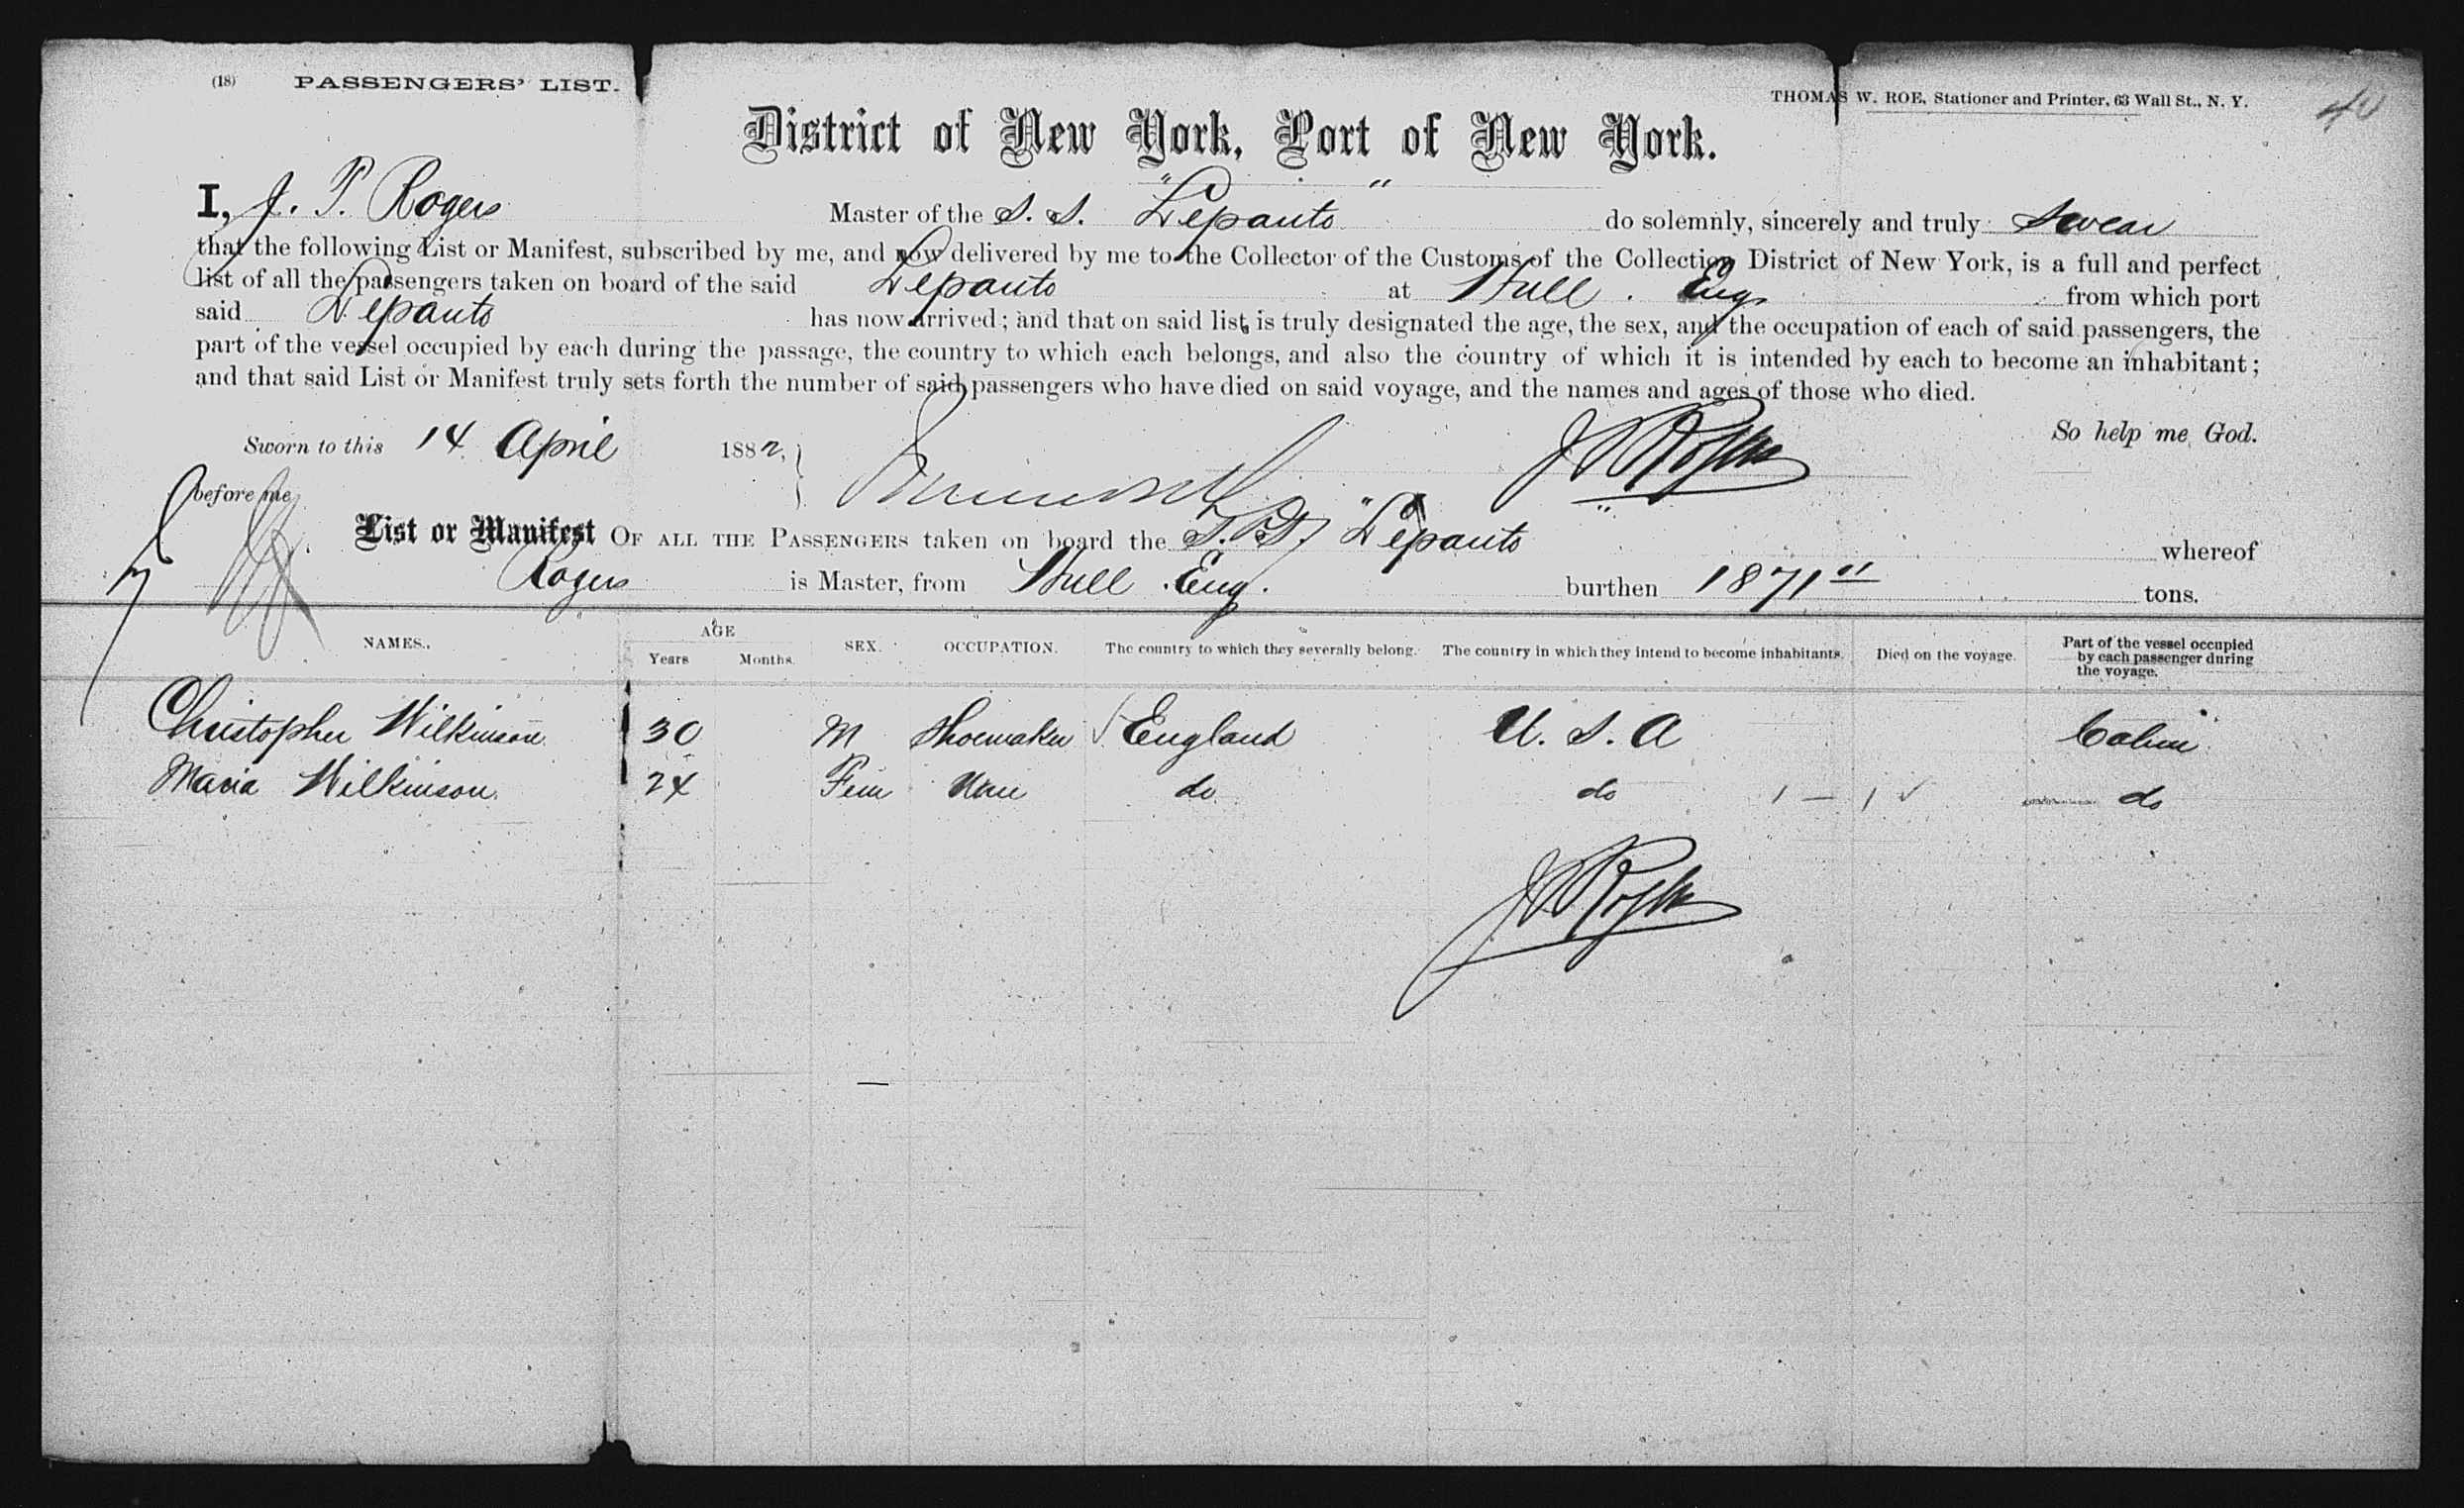 (18) PASSENGERS' LIST.
THOMAS W. ROE, Stationer and Printer, 63 Wall St., N. Y.
District of New York, Port of New York.
I, J. P. Rogers Master of the S. S. "Lepanto" do solemnly, sincerely and truly swear
that the following List or Manifest, subscribed by me, and now delivered by me to the Collector of the Customs of the Collection District of New York, is a full and perfect
list of all the passengers taken on board of the said Lepanto at Hull. Eng. from which port
said Lepanto has now arrived; and that on said list is truly designated the age, the sex, and the occupation of each of said passengers, the
part of the vessel occupied by each during the passage, the country to which each belongs, and also the country of which it is intended by each to become an inhabitant;
and that said List or Manifest truly sets forth the number of said passengers who have died on said voyage, and the names and ages of those who died.
So help me God.
Sworn to this 14 April 1882, J P Rogers
before me
List or Manifest OF ALL THE PASSENGERS taken on board the S.S. "Lepanto" whereof
Rogers is Master, from Hull. Eng. burthen 1871 tons.
NAMES. AGE Years Months. SEX. OCCUPATION. The country to which they severally belong. The country in which they intend to become inhabitants. Died on the voyage. Part of the vessel occupied by each passenger during the voyage.
Christopher Wilkinson 30 M Shoemaker England U. S. A Cabin
Maria Wilkinson. 24 Fem do do 1 - 1 do
J P Rogers